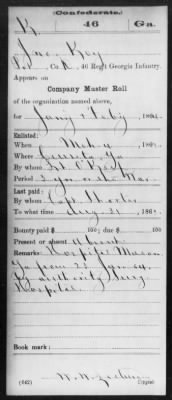 (Confederate.)
K 46 Ga.
Jno. Roy
Pvt., Co. K, 46 Reg't Georgia Infantry.
Appears on
Company Muster Roll
of the organization named above,
for Jany & Feby, 1864.
Enlisted:
When Mch 4, 186
Where Ga
By whom
Period 3 yrs or the War
Last paid:
By whom Capt.
To what time Aug. 31, 186
Bounty paid $ 100; due $ 100
Present or absent Absent
Remarks: Hospital Macon
Ga from 28 Jan 64.
by authority Surg
Hospital.
Book mark:
(642) Copyist.